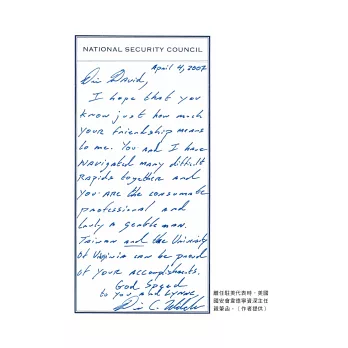 NATIONAL SECURITY COUNCIL
April 4, 2007
Dear David,
I hope that you
know just how much
your friendship means
to me. You and I have
navigated many difficult
rapids together and
you are the consummate
professional and
truly a gentleman.
Taiwan and the University
of Virginia can be proud
of your accomplishments.
God Speed
to you and Lynne
卸任駐美代表時,美國
國安會亞
。(作者提供)